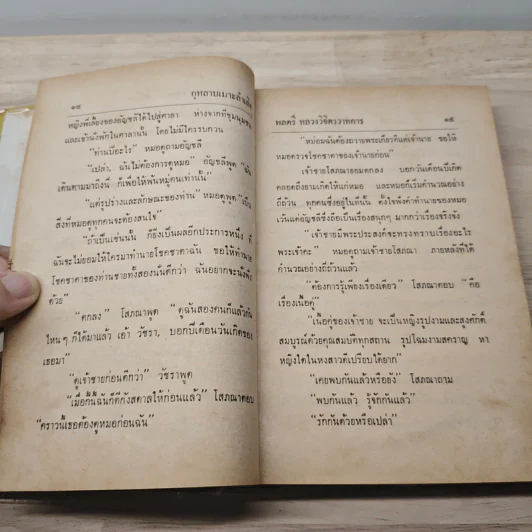 ๑๔
กุหลาบเมาะลำเลิง
หญิงพี่เลี้ยงของอัญชลีได้ไปสู่ศาลา ห่างจากที่ชุมนุมชน
และเข้านั่งพักในศาลานั้น โดยไม่มีใครรบกวน
“ท่านเป็นอะไร” หมอดูถามอัญชลี
“เปล่า, ฉันไม่ต้องการดูหมอ” อัญชลีพูด “ฉัน
เดินตามมาถึงนี่ ก็เพื่อให้พ้นหมู่คนเท่านั้น”
“แต่รูปร่างและลักษณะของท่าน” หมอดูพูด “เป็น
สิ่งที่หมอดูทุกคนจะต้องสนใจ”
“ถ้าเป็นเช่นนั้น ก็ยิ่งเป็นผลอีกประการหนึ่ง ที่
ฉันจะไม่ยอมให้ใครมาทำนายโชคชาตาฉัน ขอให้ทำนาย
โชคชาตาของท่านชายทั้งสองนั้นดีกว่า ฉันอยากจะนั่งฟัง
ด้วย”
“ตกลง” โสภณาพูด “ดูฉันสองคนก็แล้วกัน
ไหน ๆ ก็ได้มาแล้ว เอ้า วัชรา, บอกปีเดือนวันเกิดของ
เธอมา”
“ดูเจ้าชายก่อนดีกว่า” วัชราพูด
โสภณาตอบ
“คราวนี้เธอต้องดูหมอก่อนฉัน”
พลตรี หลวงวิจิตรวาทการ
๑๕
“หม่อมฉันต้องถวายพระเกียรติแด่เจ้านาย ขอให้
หมอตรวจโชคชาตาของเจ้านายก่อน”
เจ้าชายโสภณายอมตกลง บอกวันเดือนปีเกิด
ตลอดถึงยามเกิดให้แก่หมอ และหมอก็เริ่มคำนวณอย่าง
ถี่ถ้วน ทุกคนซึ่งอยู่ในที่นั้น ตั้งใจฟังคำทำนายของหมอ
เว้นแต่อัญชลีซึ่งถือเป็นเรื่องสนุกๆ มากกว่าเรื่องจริงจัง
“เจ้าชายมีพระประสงค์จะทรงทราบเรื่องอะไร
พระเจ้าค่ะ” หมอดูถามเจ้าชายโสภณา ภายหลังที่ได้
คำนวณอย่างถี่ถ้วนแล้ว
“ต้องการรู้เพียงเรื่องเดียว” โสภณาตอบ “คือ
เรื่องเนื้อคู่”
“เนื้อคู่ของเจ้าชาย จะเป็นหญิงรูปงามและสูงศักดิ์
สมบูรณ์ด้วยคุณสมบัติทุกสถาน รูปโฉมงามสคราญ หา
หญิงใดในหงสาวดีเปรียบได้ยาก”
“เคยพบกันแล้วหรือยัง” โสภณาถาม
“พบกันแล้ว รู้จักกันแล้ว”
“รักกันด้วยหรือเปล่า”